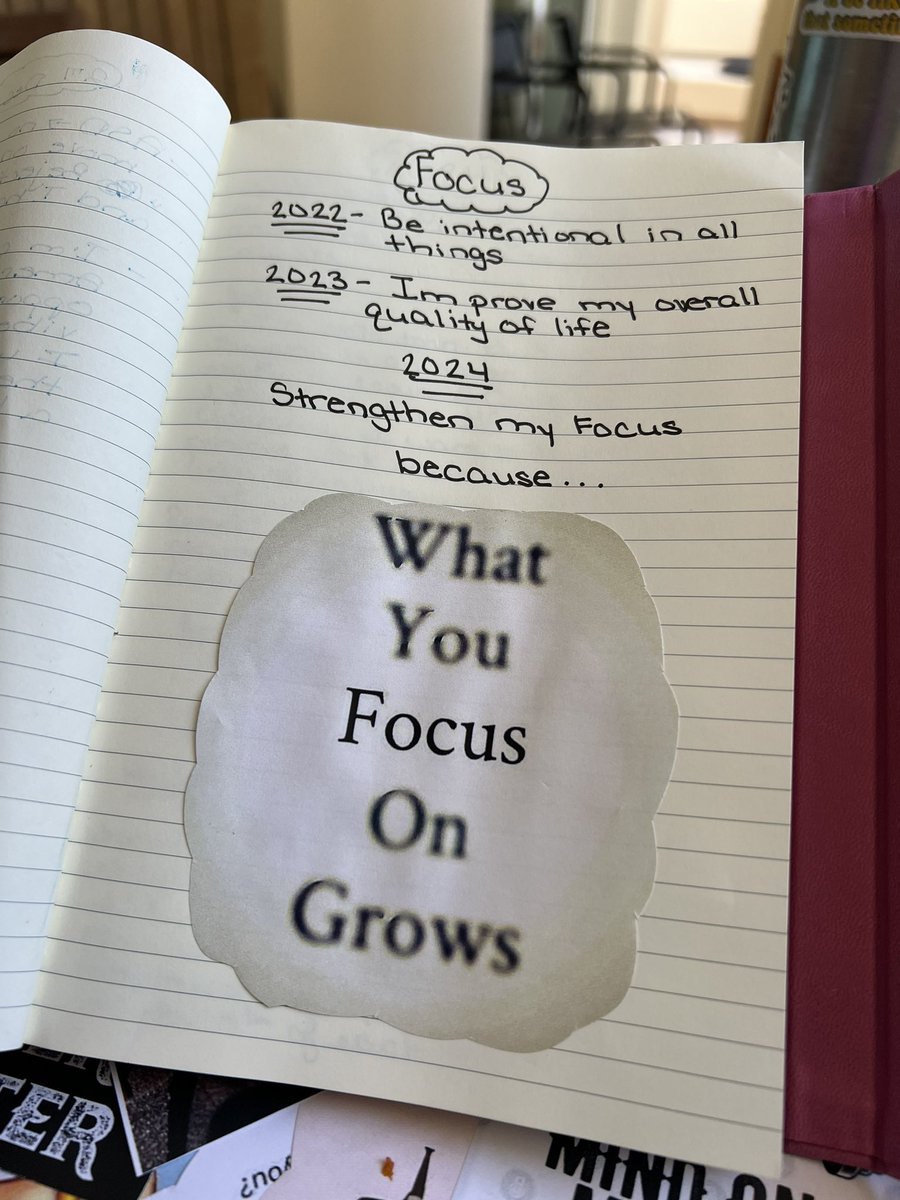 Focus
2022 - Be intentional in all
things
2023 - Improve my overall
quality of life
2024
Strengthen my Focus
because...
What
You
Focus
On
Grows
TER
MIND ON